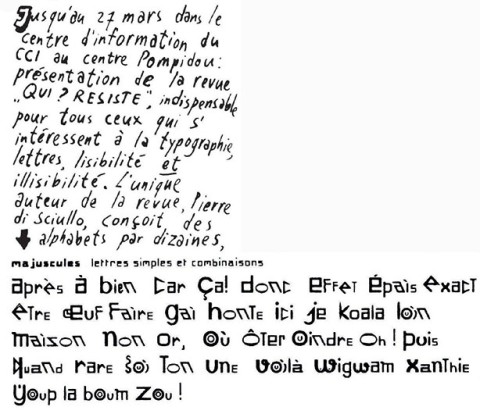 Jusqu'au 27 mars dans le
centre d'information du
CCI au centre Pompidou :
présentation de la revue
„QUI ? RESISTE”, indispensable
pour tous ceux qui s'
intéressent à la typographie,
lettres, lisibilité et
illisibilité. L'unique
auteur de la revue, Pierre
di Sciullo, conçoit des
alphabets par dizaines,
majuscules lettres simples et combinaisons
après à bien car ça! donc effet épais exact
être œuf faire gai honte ici je koala loin
maison non or, où ôter oindre oh! puis
quand rare soi ton une voilà wigwam xanthie
youp la boum zou !